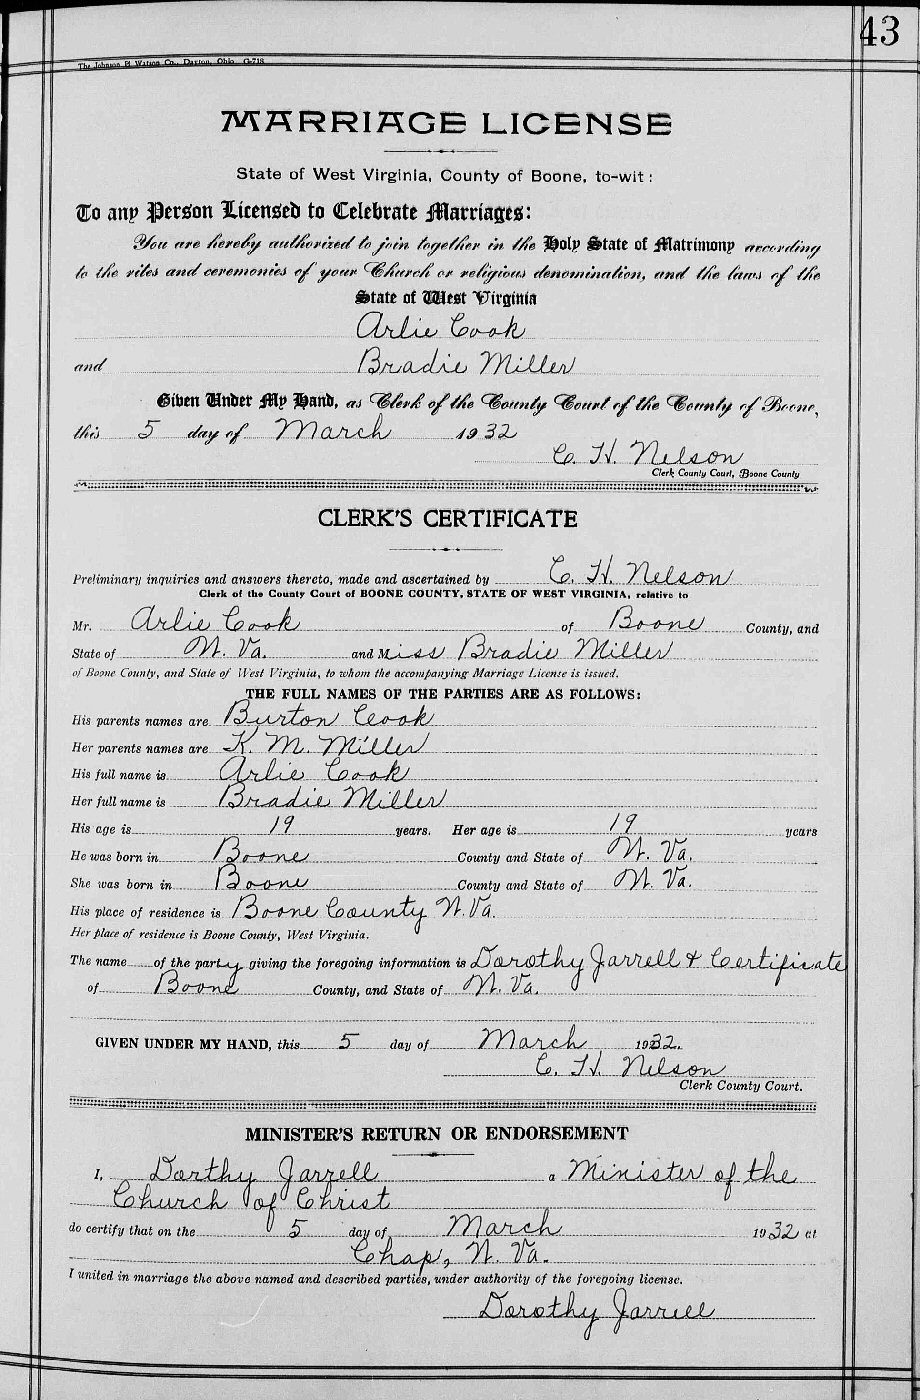 43
The Johnson & Watson Co., Dayton, Ohio G-718
MARRIAGE LICENSE
State of West Virginia, County of Boone, to-wit:
To any Person Licensed to Celebrate Marriages:
You are hereby authorized to join together in the Holy State of Matrimony according
to the rites and ceremonies of your Church or religious denomination, and the laws of the
State of West Virginia
Arlie Cook
and Bradie Miller
Given Under My Hand, as Clerk of the County Court of the County of Boone,
this 5 day of March 1932
C. H. Nelson
Clerk County Court, Boone County
CLERK'S CERTIFICATE
Preliminary inquiries and answers thereto, made and ascertained by C. H. Nelson
Clerk of the County Court of BOONE COUNTY, STATE OF WEST VIRGINIA, relative to
Mr. Arlie Cook of Boone County, and
State of W. Va. and Miss Bradie Miller
of Boone County, and State of West Virginia, to whom the accompanying Marriage License is issued.
THE FULL NAMES OF THE PARTIES ARE AS FOLLOWS:
His parents names are Burton Cook
Her parents names are K. M. Miller
His full name is Arlie Cook
Her full name is Bradie Miller
His age is 19 years. Her age is 19 years
He was born in Boone County and State of W. Va.
She was born in Boone County and State of W. Va.
His place of residence is Boone County W. Va.
Her place of residence is Boone County, West Virginia.
The name of the party giving the foregoing information is Dorothy Jarrell & Certificate
of Boone County, and State of W. Va.
GIVEN UNDER MY HAND, this 5 day of March 1932.
C. H. Nelson
Clerk County Court.
MINISTER'S RETURN OR ENDORSEMENT
I, Dorthy Jarrell a Minister of the
Church of Christ
do certify that on the 5 day of March 1932 at
Chap, W. Va.
I united in marriage the above named and described parties, under authority of the foregoing license.
Dorothy Jarrell